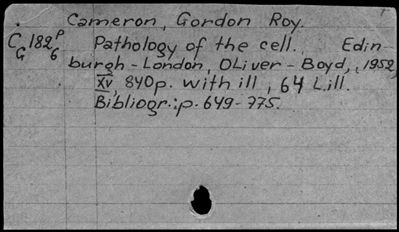 Cameron, Gordon Roy.
C G 182 P 6 Pathology of the cell. Edin-
burgh - London, OLiver - Boyd, 1952,
XV, 840p. with ill, 64 L.ill.
Bibliogr.: p. 649-775.